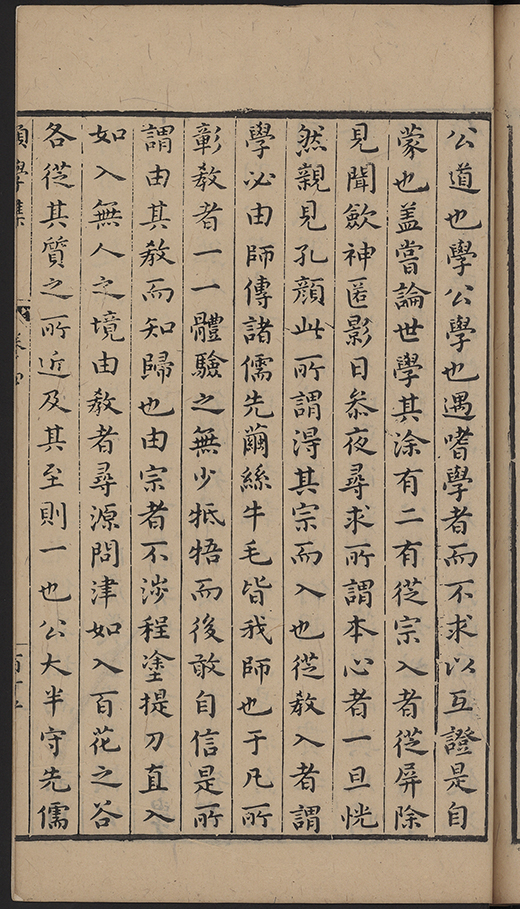 公道也學公學也遇嗜學者而不求以互證是自
蒙也盖嘗論世學其涂有二有從宗入者從屏除
見聞歛神匿影日叅夜尋求所謂本心者一旦恍
然親見孔顔此所謂得其宗而入也從敎入者謂
學必由師傳諸儒先繭絲牛毛皆我師也于凡所
彰敎者一一體驗之無少牴牾而後敢自信是所
謂由其敎而知歸也由宗者不涉程塗提刀直入
如入無人之境由敎者尋源問津如入百花之谷
各從其質之所近及其至則一也公大半守先儒